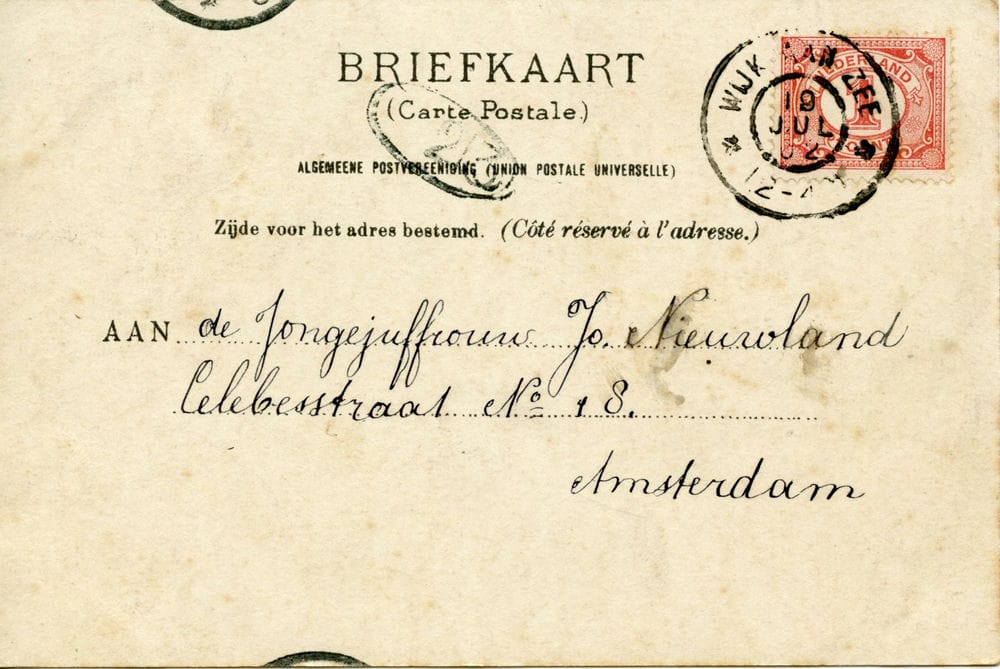 BRIEFKAART
(Carte Postale.)
ALGEMEENE POSTVEREENIGING (UNION POSTALE UNIVERSELLE)
Zijde voor het adres bestemd. (Côté réservé à l'adresse.)
WIJK AAN ZEE
19
JUL
02
12-4N
NEDERLAND
1
CENT
AAN de Jongejuffrouw Jo. Nieuwland
Celebesstraat No 18.
Amsterdam